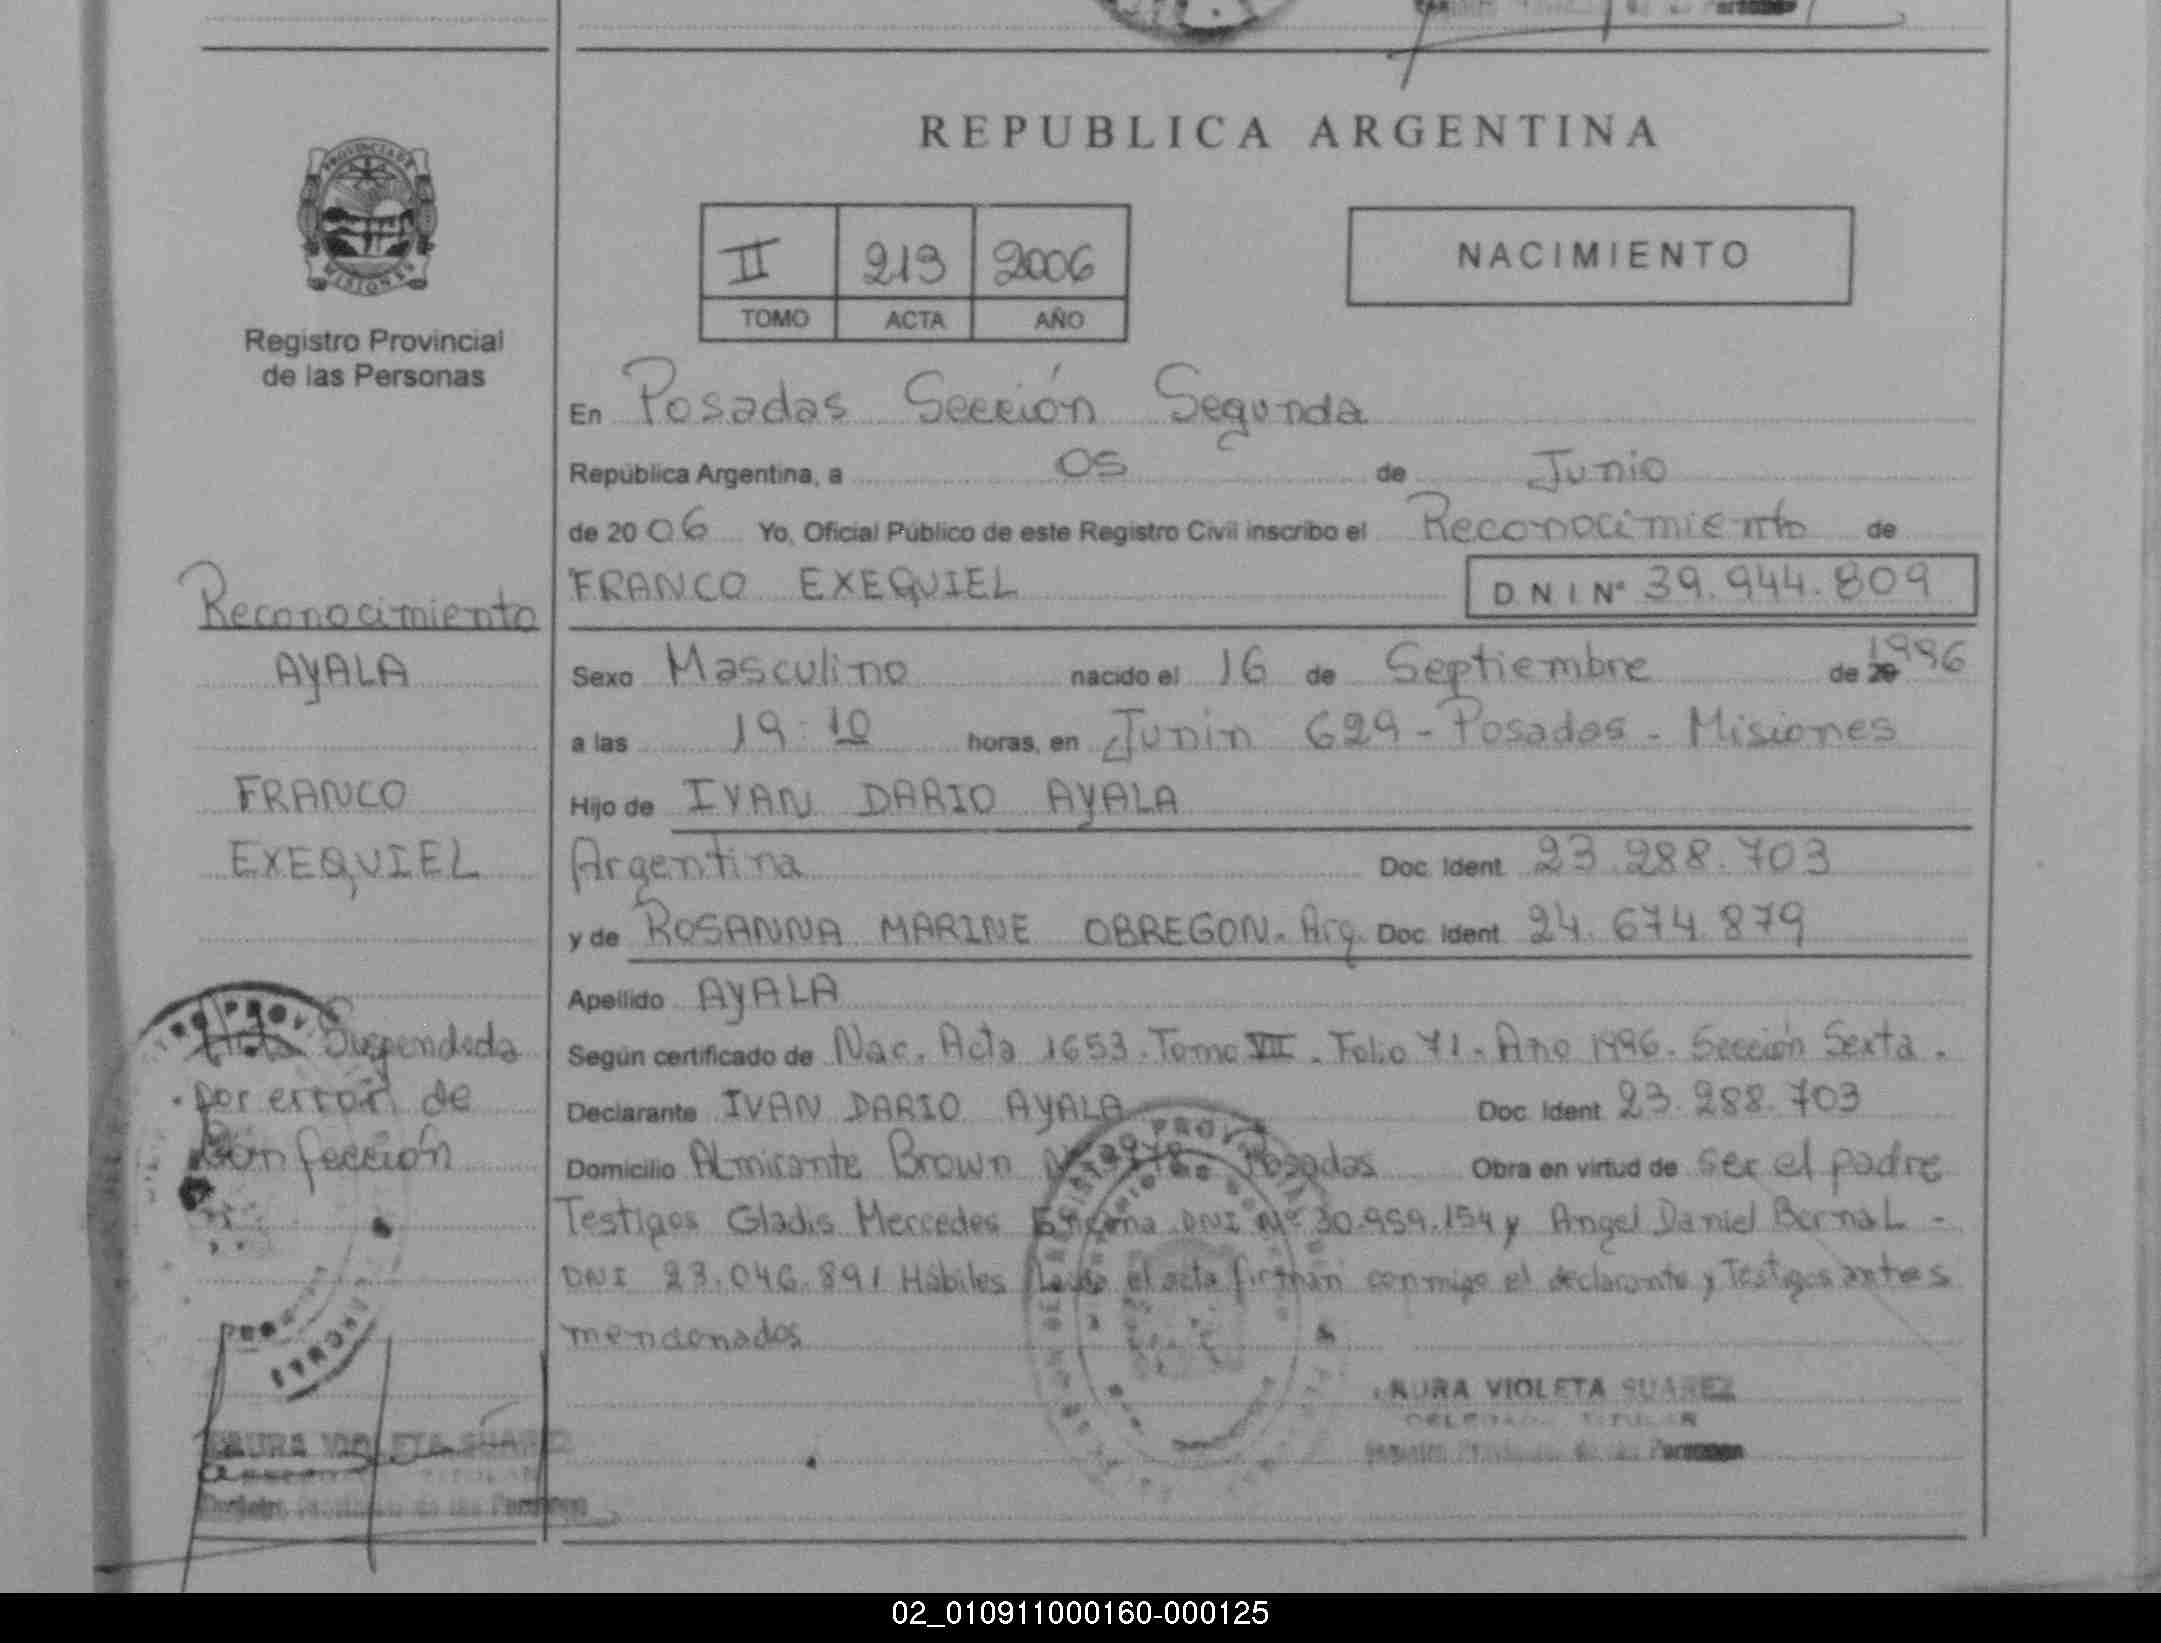 REPUBLICA ARGENTINA
PROVINCIA DE
MISIONES
Registro Provincial
de las Personas
II 213 2006
TOMO ACTA AÑO
NACIMIENTO
En Posadas Sección Segunda
República Argentina, a 05 de Junio
de 2006 Yo, Oficial Público de este Registro Civil inscribo el Reconocimiento de
FRANCO EXEQUIEL D N I Nº 39.944.809
Sexo Masculino nacido el 16 de Septiembre de 20 1996
a las 19:10 horas, en Junin 629 - Posadas - Misiones
Hijo de IVAN DARIO AYALA
Argentina Doc. Ident. 23.288.703
y de ROSANNA MARINE OBREGON. Arg. Doc. Ident. 24.674.879
Apellido AYALA
Según certificado de Nac. Acta 1653. Tomo VII. Folio 71. Año 1996. Sección Sexta.
Declarante IVAN DARIO AYALA Doc. Ident. 23.288.703
Domicilio Almirante Brown Posadas Obra en virtud de ser el padre
Testigos Gladis Mercedes DNI Nº 30.959.154 y Angel Daniel Bernal -
DNI 23.046.891 Hábiles Leida el acta firman conmigo el declarante y Testigos antes
mencionados
LAURA VIOLETA SUAREZ
DELEGADA TITULAR
Registro Provincial de las Personas
Reconocimiento
AYALA
FRANCO
EXEQUIEL
Acta Suspendida
por error de
Confección
LAURA VIOLETA SUAREZ
TITULAR
Registro Provincial de las Personas
02_010911000160-000125